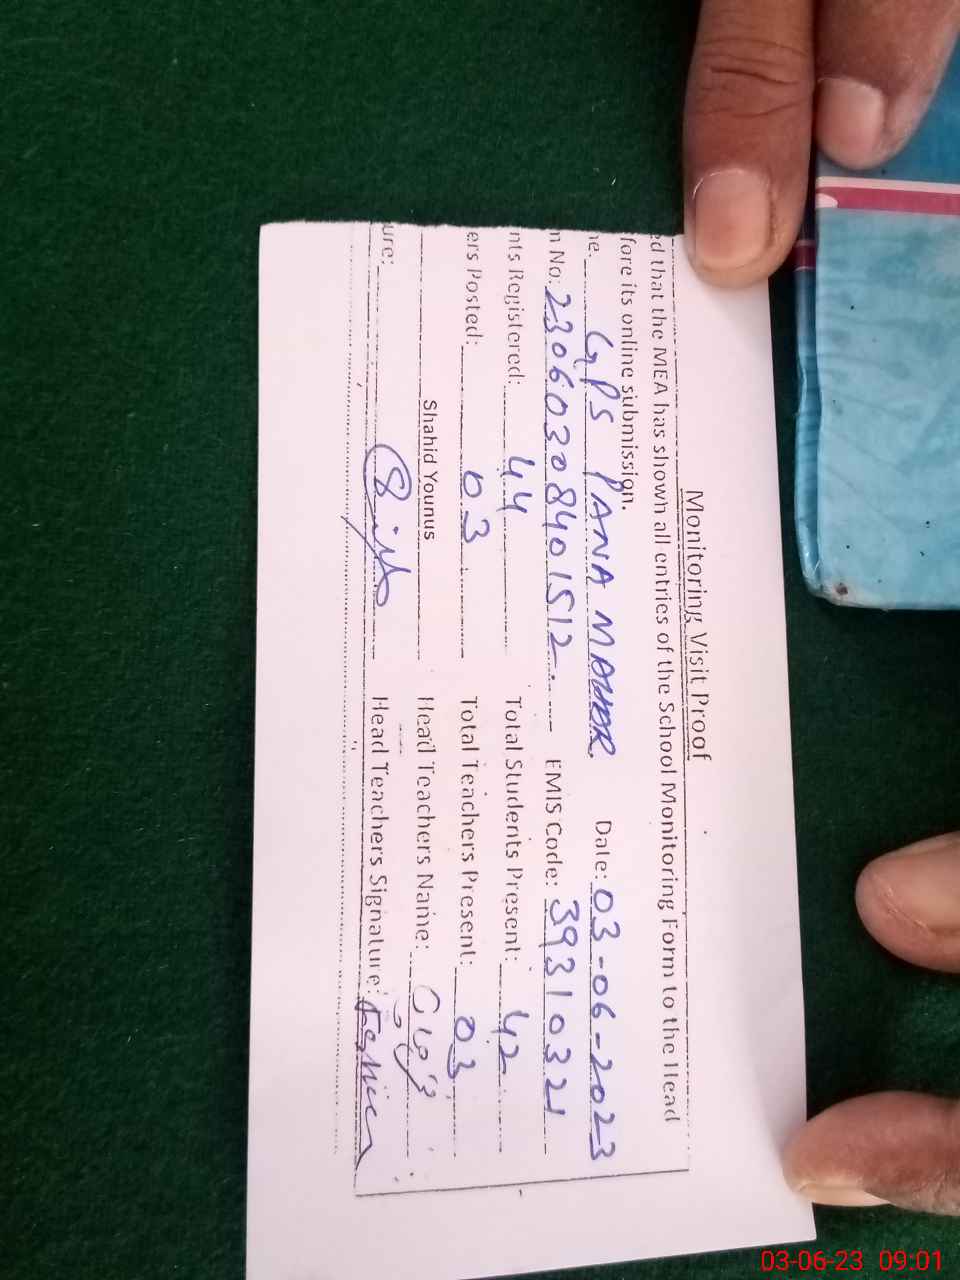 Monitoring Visit Proof
ed that the MEA has shown all entries of the School Monitoring Form to the Head
fore its online submission.
ne. GPS PANA MAHAR Date: 03-06-2023
n No: 23060308401512. EMIS Code: 39310321
nts Registered: 44 Total Students Present: 42
ers Posted: 03 Total Teachers Present: 03
Shahid Younus Head Teachers Name:
ure: Head Teachers Signature:
03-06-23 09:01